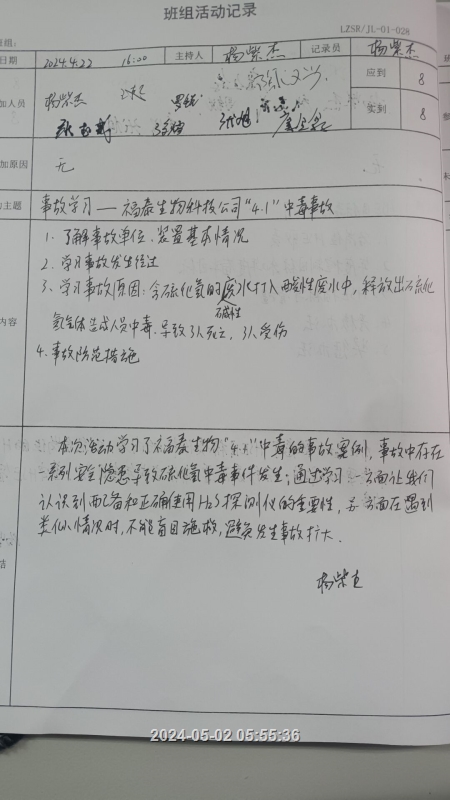 班组活动记录
LZSR/JL-01-028
班组:
日期 2024.4.22 16:20 主持人 杨柴杰 记录员 杨柴杰
加人员 杨柴杰
应到 8
实到 8
加原因 无
主题 事故学习——福泰生物科技公司“4.1”中毒事故
内容
1. 了解事故单位、装置基本情况
2. 学习事故发生经过
3. 学习事故原因:含硫化氢的废水打入酸性废水中,释放出硫化
碱性
氢气体造成人员中毒.导致3人死亡,3人受伤
4. 事故防范措施
本次活动学习了福泰生物“4.1”中毒的事故案例,事故中存在
一系列安全隐患导致硫化氢中毒事件发生;通过学习一方面让我们
认识到配备和正确使用H₂S探测仪的重要性,另一方面在遇到
类似情况时,不能盲目施救,避免发生事故扩大.
结
杨柴杰
2024-05-02 05:55:36